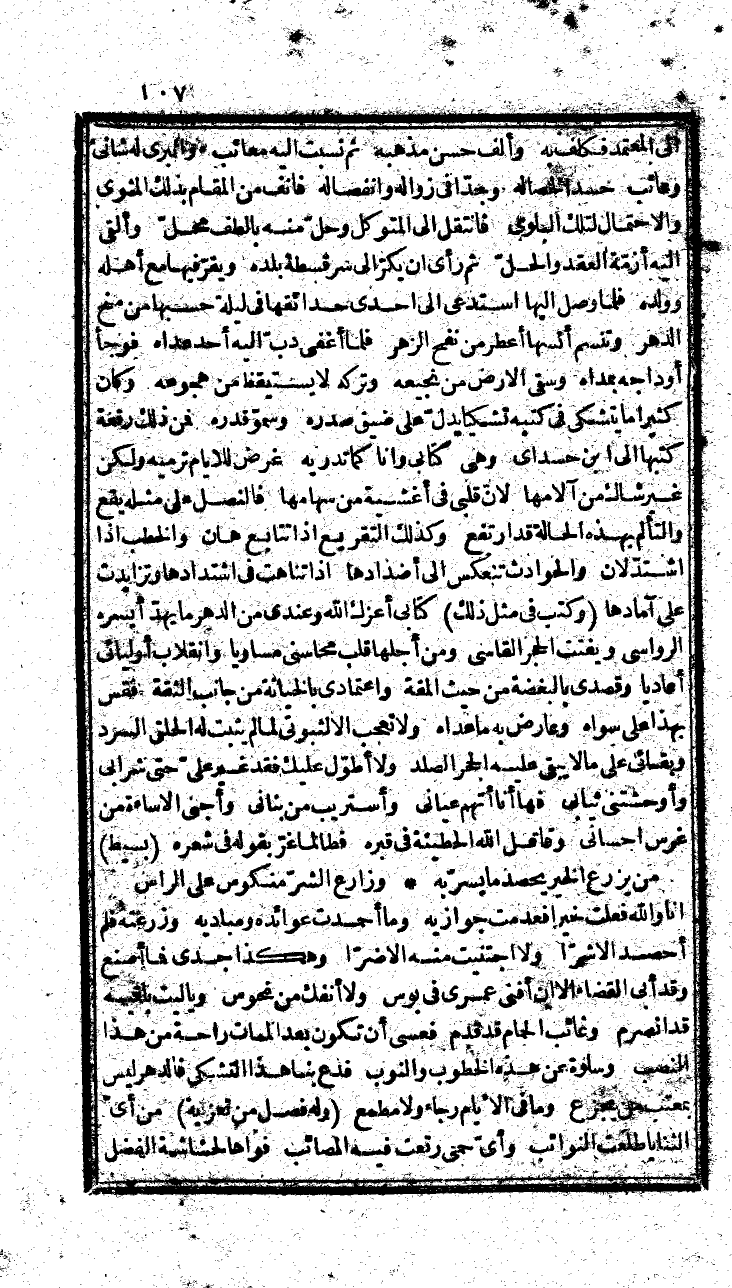 ١٠٧
الى المعتمد فكلف به وألف حسن مذهبه ثم نسبت اليه معائب وانبرى له شانئ
وعائب حسد الخصاله وجدّا فى زواله وانفصاله فانف من المقام بذلك المثوى
والاحتمال لتلك البلوى فانتقل الى المتوكل وحلّ منه بالطف محلّ وألقى
اليه أزمّة العقد والحلّ ثم رأى ان يكرّ الى سرقسطة بلده ويقرّ فيها مع أهله
وولده فلما وصل اليها استدعى الى احدى حدائقها فى ليلة حسبها من منح
الدهر وتنسم أنسها أعطر من نفح الزهر فلما أغفى دبّ اليه أحد عداه فوجأ
أوداجه بمداه وسقى الارض من نجيعه وتركه لا يستيقظ من هجوعه وكان
كثيرا ما يتشكى فى كتبه تشكيا يدلّ على ضيق صدره وسموّ قدره فمن ذلك رقعة
كتبها الى ابن حسداى وهى كتابى وانا كما تدريه غرض للايام ترميه ولكن
غير شاك من آلامها لانّ قلبى فى أغشية من سهامها فالنصل على مثله يقع
والتألم بهذه الحالة قد ارتفع وكذلك التقريع اذا تتابع هان والخطب اذا
اشتدّ لان والحوادث تنعكس الى أضدادها اذا تناهت فى اشتدادها وتزايدت
على آمادها (وكتب فى مثل ذلك) كتابى أعزك الله وعندى من الدهر ما يهدّ أيسره
الرواسى ويفتت الحجر القاسى ومن أجلها قلب محاسنى مساويا وانقلاب أوليائى
أعاديا وقصدى بالبغضة من حيث المقة واعتمادى بالخيانة من جانب الثقة فقس
بهذا على سواه وعارض به ماعداه ولا تعجب الا لثبوتى لما لم يثبت له الحلق السرد
وبقائى على مالا يبقى عليه الحجر الصلد ولا أطوّل عليك فقد غير علىّ حتى شرابى
وأوحشتنى ثيابى فها أنا أتهم عيانى وأستريب من بنانى وأجنى الاساءة من
غرس احسانى وقاتل الله الحطيئة فى قبره فطالما غرّ بقوله فى شعره (بسيط)
من يزرع الخير يحصد ما يسرّ به * وزارع الشرّ منكوس على الراس
انا والله فعلت خيرا فعدمت جوازيه وما أحمدت عوائده ومباديه وزرعته فلم
أحصد الا شرّا ولا اجتنيت منه الا ضرّا وهكذا جدى فما أصنع
وقد أبى القضاء الا ان أفنى عمرى فى بوس ولا أنفك من نحوس ويا ليت باقيه
قد انصرم وغائب الحمام قد قدم فعسى أن تكون بعد الممات راحة من هذا
النصب وسلوة عن هذه الخطوب والنوب فدع بنا هذا التشكى فالدهر ليس
بمعتب من يجزع وما فى الايام رجاء ولا مطمع (وله فصل من تعزية) من أىّ
الثنايا طلعت النوائب وأىّ حمى رتعت فيه المصائب فواها لحشاشة الفضل